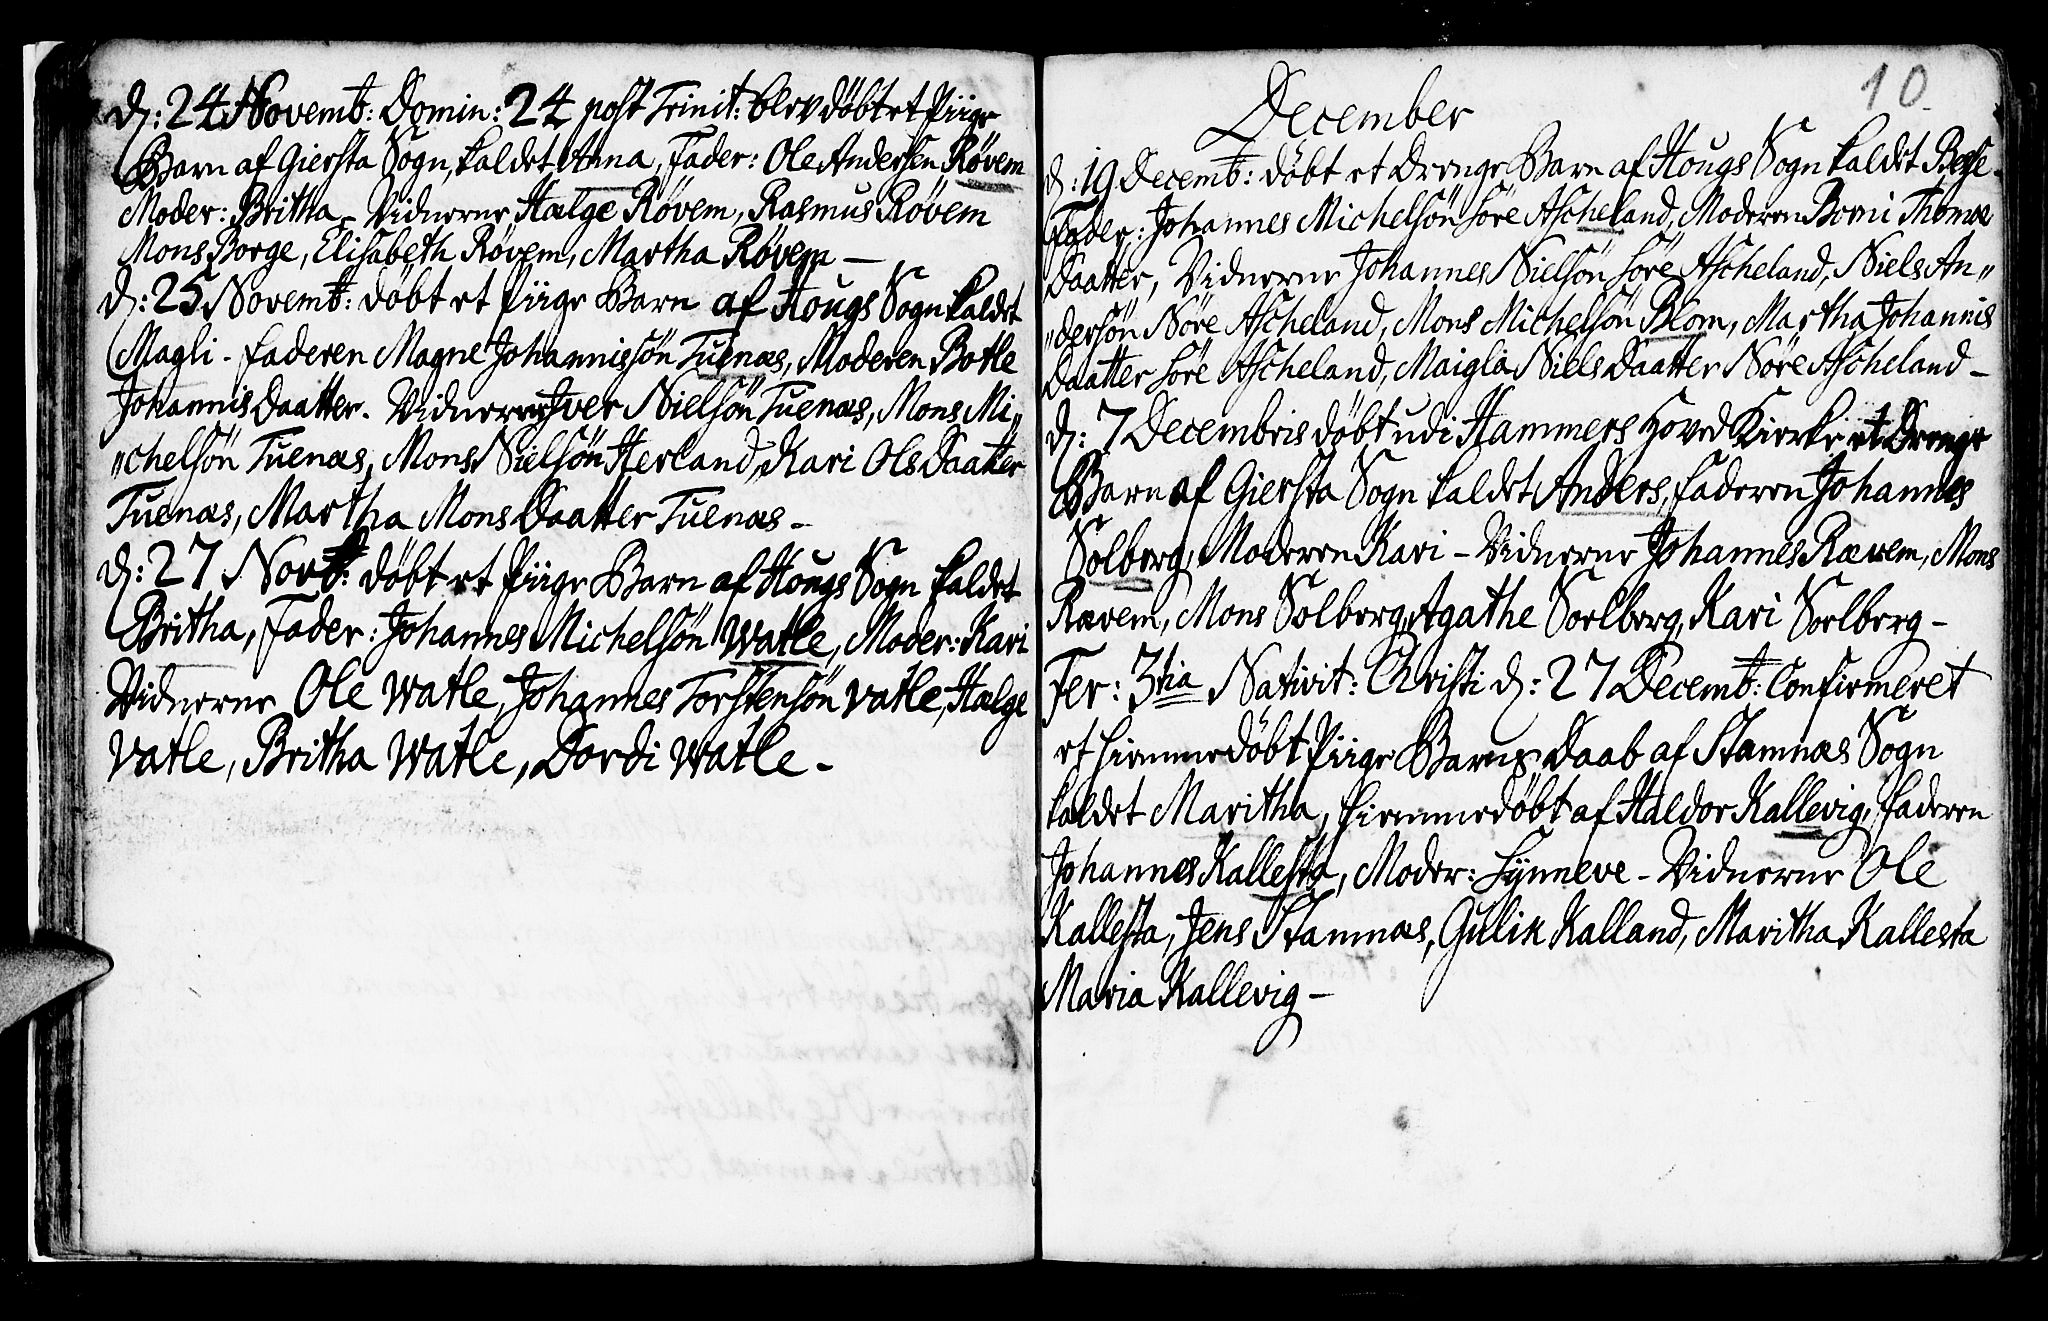 d: 24 Novemb: Domin: 24 post Trinit: blev döbt et Piige
Barn af Giersta Sogn, kaldet Anna, Fader: Ole Andersen Røvem
Moder: Britha - Vidnerne Hælge Røvem, Rasmus Røvem
Mons Borge, Elisabeth Røvem, Martha Røvem -
d: 25 Novemb: döbt et Piige Barn af Hougs Sogn kaldet
Magli - Faderen Magne Johannissön Tuenæs, Moderen Botle
Johannis Daatter. Vidnerne Iver Nielsön Tuenæs, Mons Mi„
„chelsön Tuenæs, Mons Nielsön Herland, Kari Ols Daatter
Tuenæs, Martha Mons Daatter Tuenæs -
d: 27 Novb: döbt et Piige Barn af Hougs Sogn kaldet
Britha, Fader: Johannes Michelsön Watle, Moder: Kari
Vidnerne Ole Watle, Johannes Torstensön Vatle, Hælge
Vatle, Britha Watle, Dordi Watle -
10
December
d: 19 Decemb: döbt et Drenge Barn af Hougs Sogn kaldet
Fader: Johannes Michelsön Söre Ascheland, Moderen Borni Thomæ
Daatter, Vidnerne Johannes Nielsön Söre Ascheland, Niels An„
„dersön Nöre Ascheland, Mons Michelsön Blom, Martha Johannis
Daatter Söre Ascheland, Maigla Niels Daatter Nöre Ascheland -
d: 7 Decembris döbt udi Hammers Hoved Kierke et Drenge
Barn af Giersta Sogn kaldet Anders, Faderen Johannes
Solberg, Moderen Kari - Vidnerne Johannes Rævem, Mons
Rævem, Mons Solberg, Agathe Soelberg, Kari Soelberg -
Fer: 3tia Nativit: Christi d: 27 Decemb: Confirmeret
et hiemmedöbt Piige Barns Daab af Stamnæs Sogn
kaldet Maritha, hiemmedöbt af Haldor Kallevig, Faderen
Johannes Kallesta, Moder: Synneve - Vidnerne Ole
Kallesta, Jens Stamnæs, Gulik Kalland, Maritha Kallesta
Maria Kallevig -